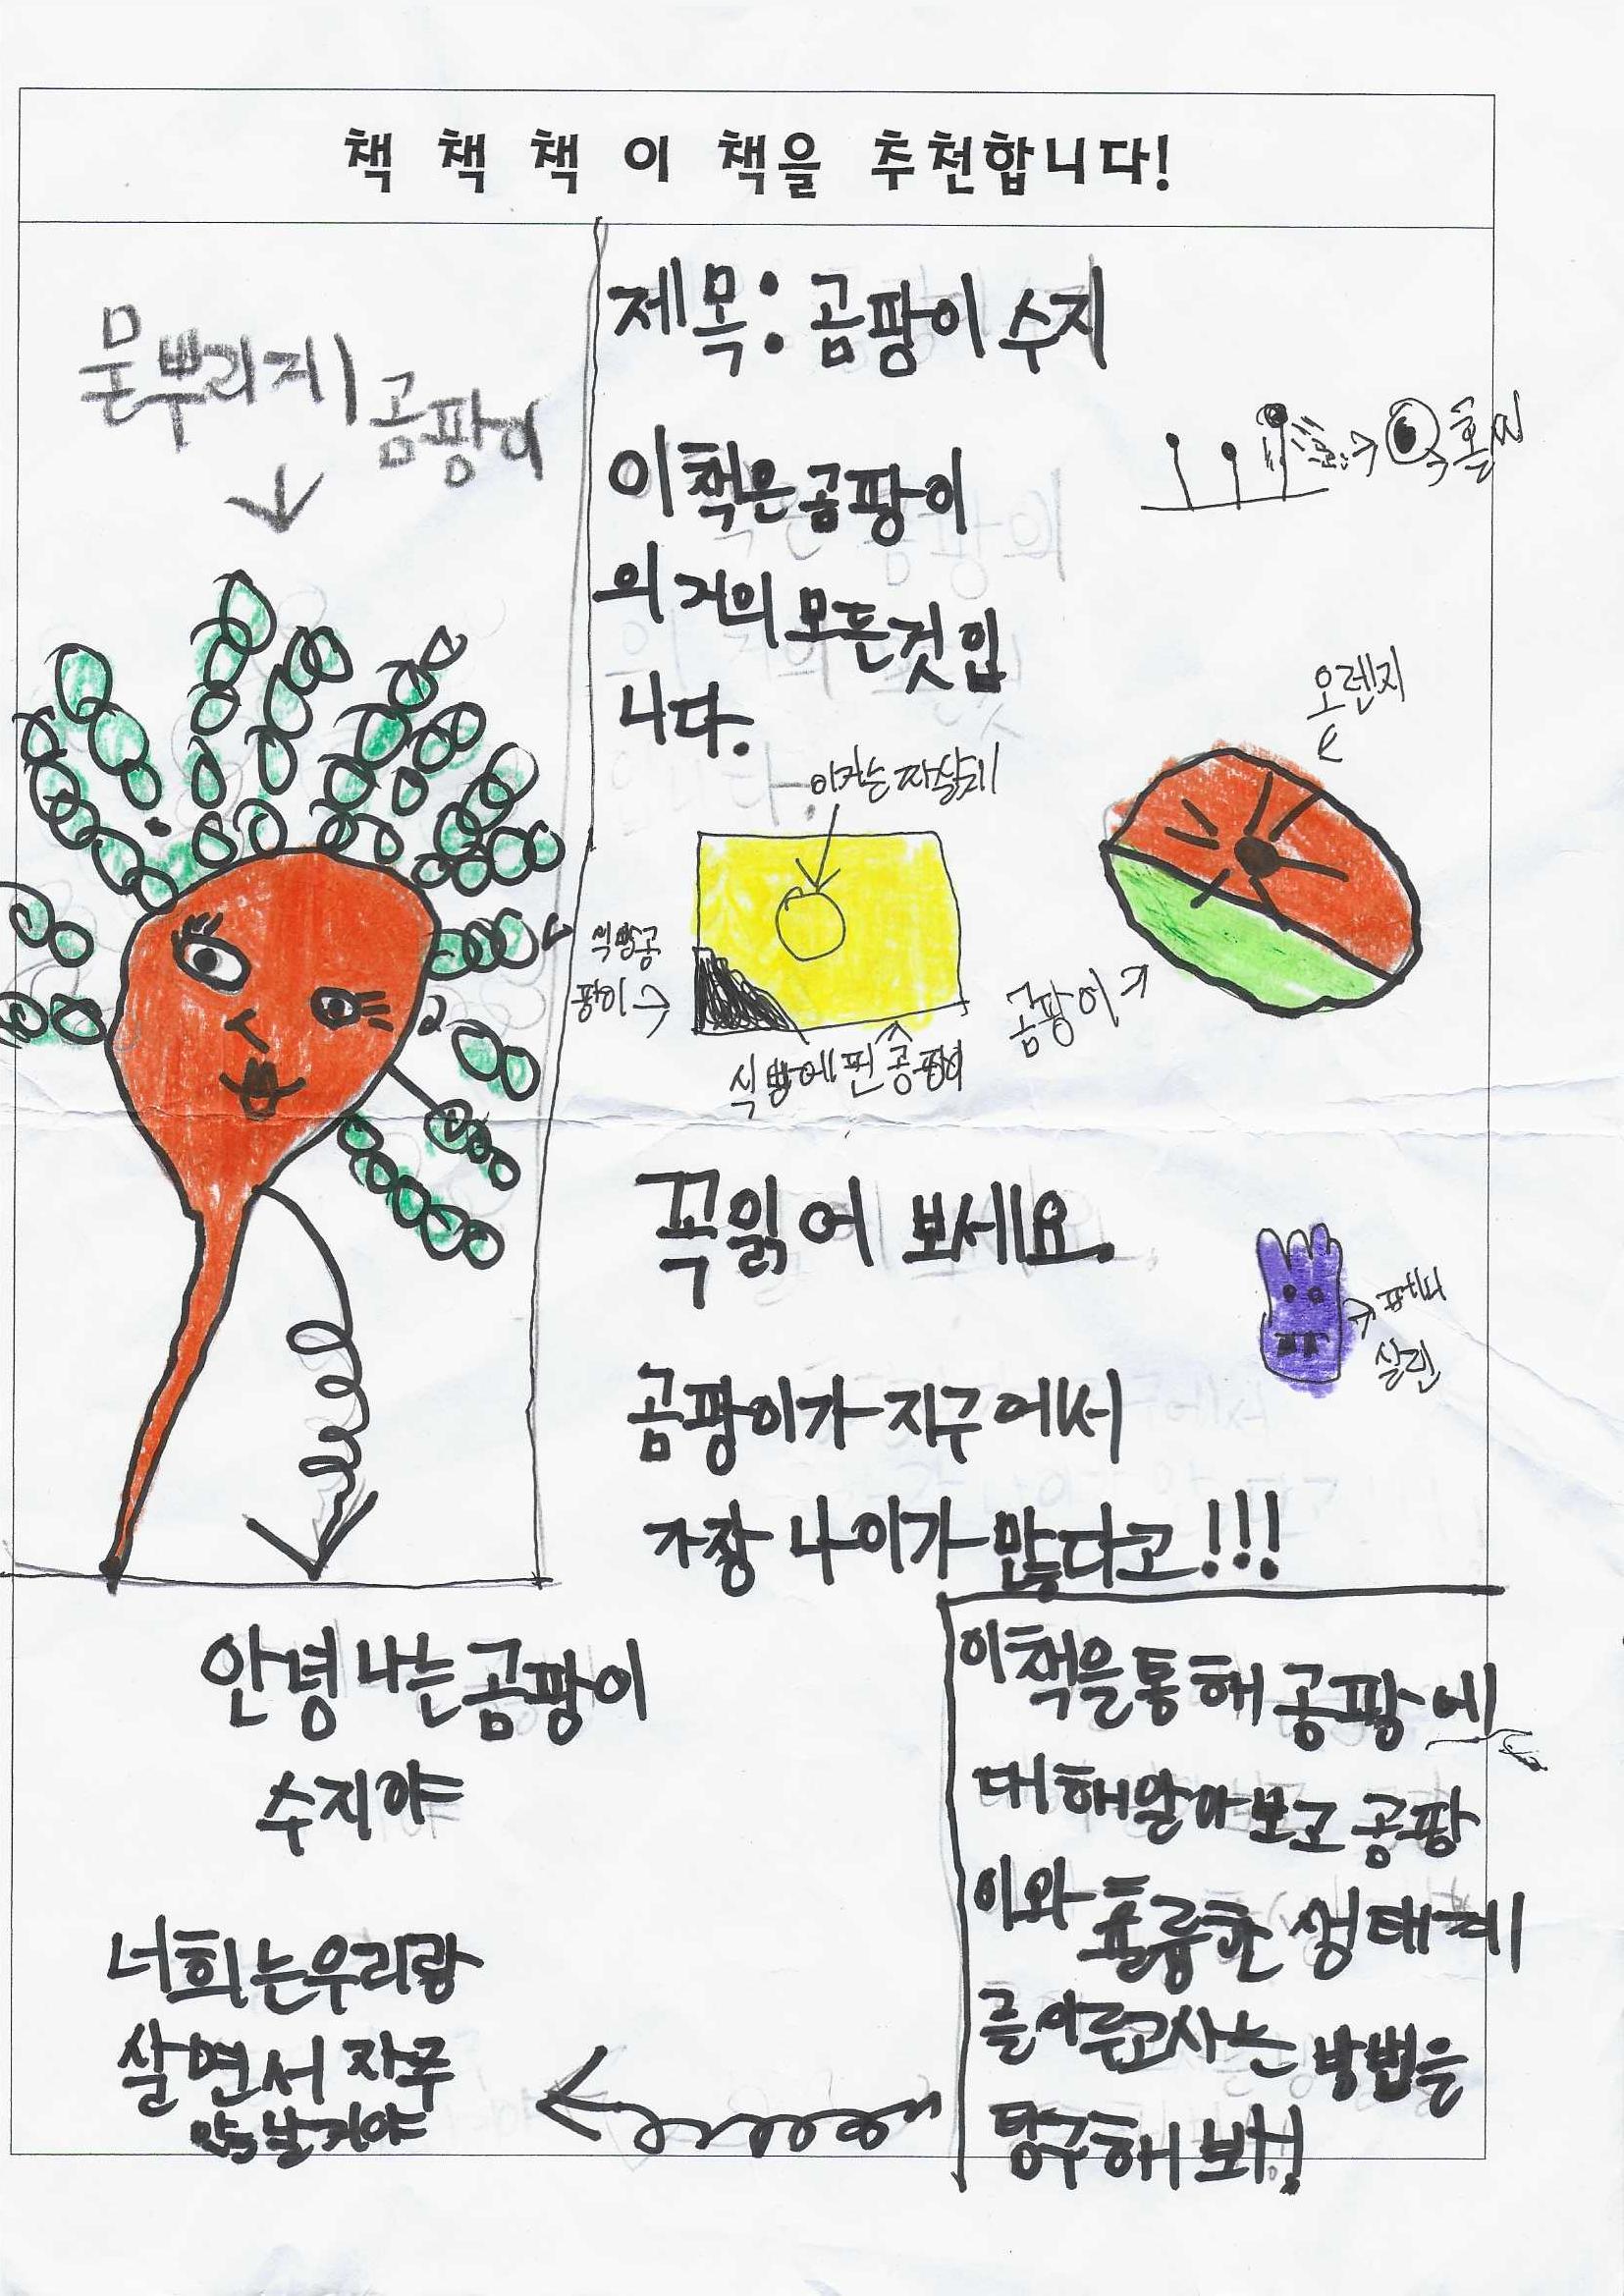 책 책 책 이 책을 추천합니다!
물뿌리지
곰팡이
제목: 곰팡이 수지
이책은 곰팡이
의 거의 모든것 입
니다.
오렌지
식빵곰
팡이
식빵에 핀 곰팡이
곰팡이
꼭읽어 보세요.
페니
실린
곰팡이가 지구에서
가장 나이가 많다고!!!
안녕 나는 곰팡이
수지야
너희는 우리랑
살면서 자주
만날거야
이책을 통해 공팡에
대해알아보고 공팡
이와 훌륭한 생태계
를 이루고사는 방법을
탐구해 봐!